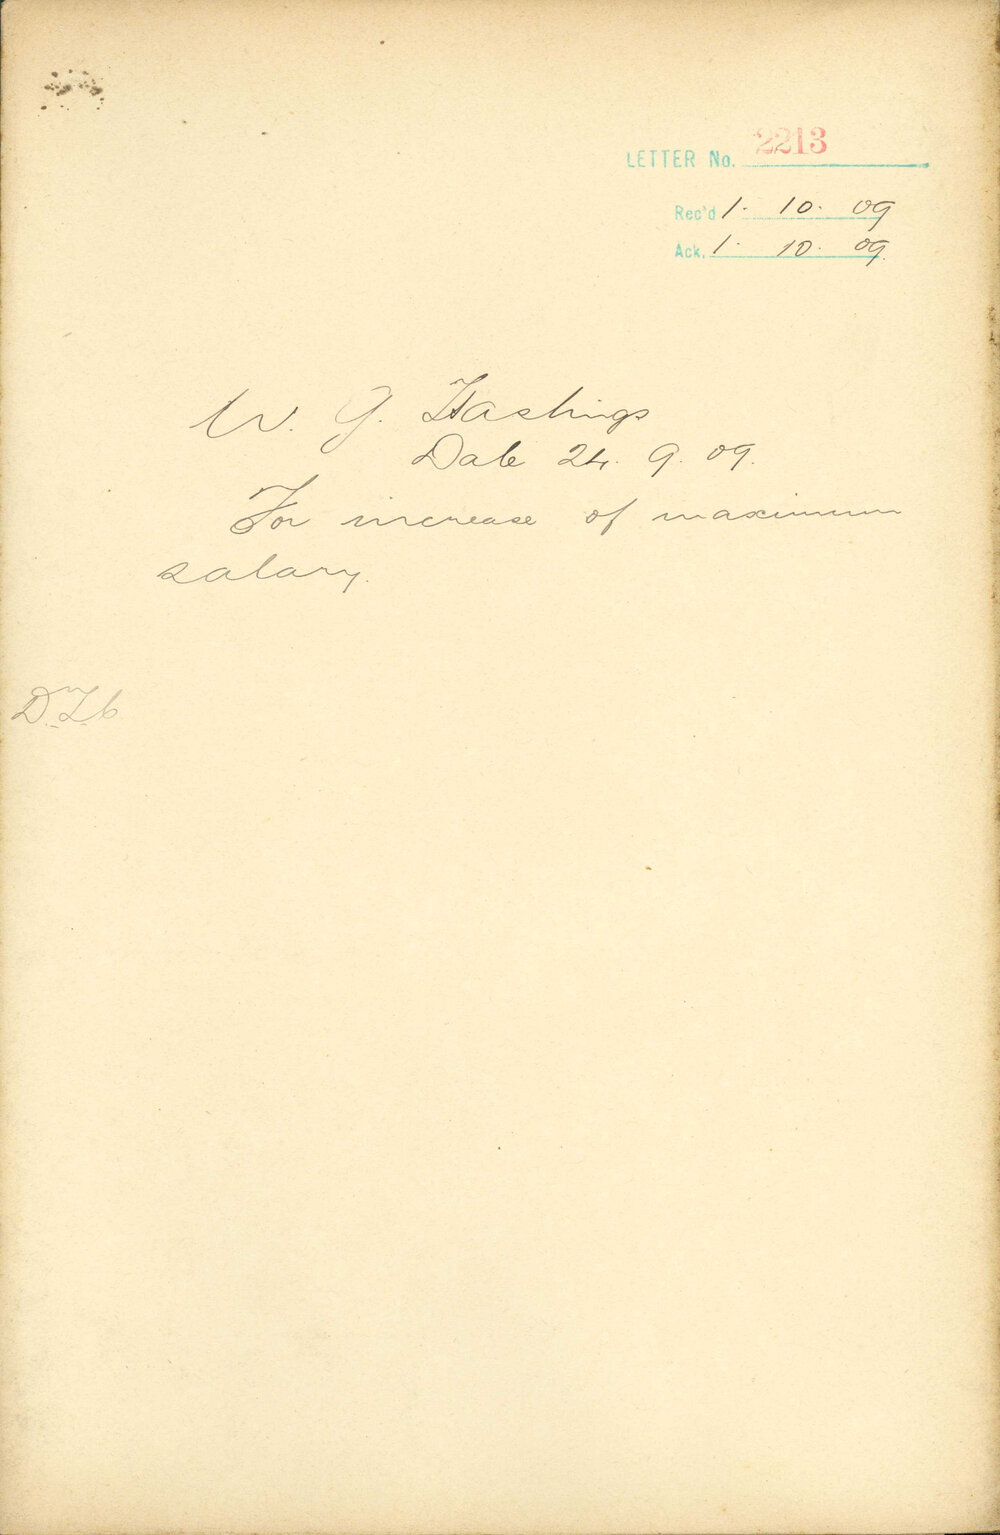 LETTER No. 2213
Rec'd 1. 10. 09
Ack. 1. 10. 09.
W. G. Hastings
Date 24. 9. 09.
For increase of maximum
salary.